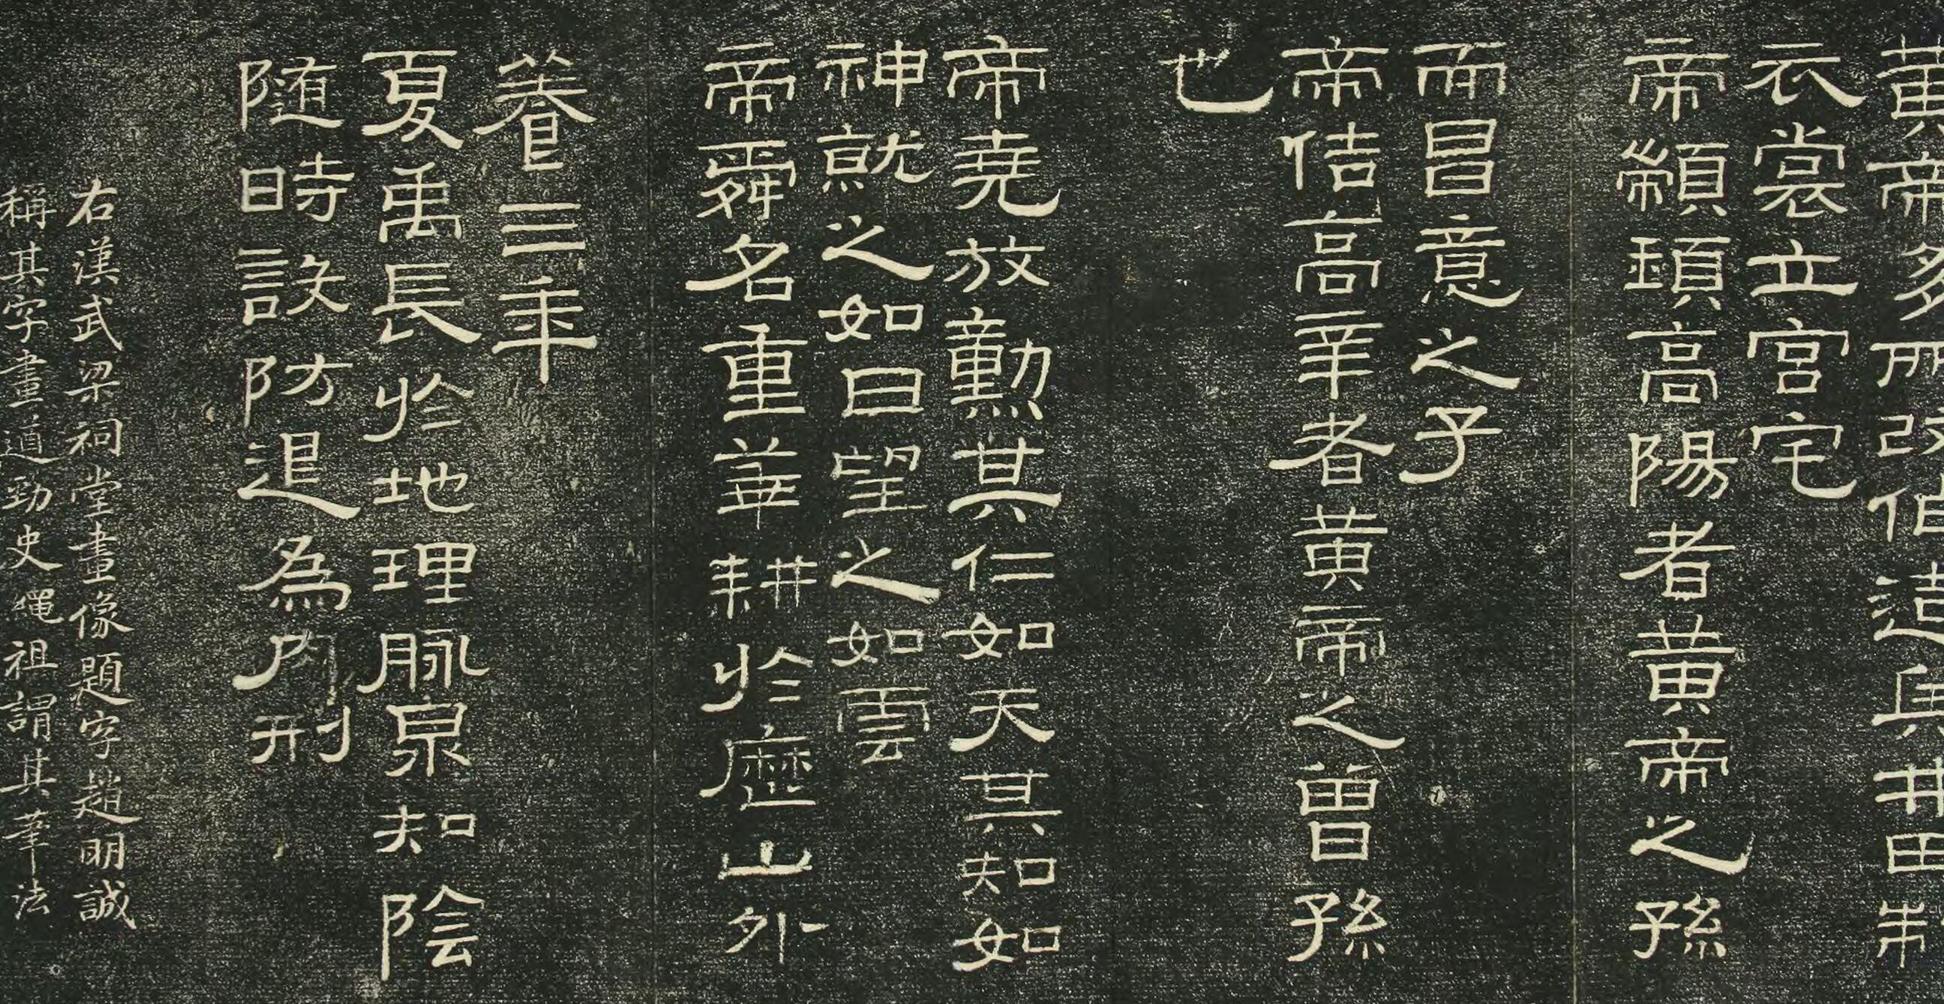 黃帝多所改作造兵井田制
衣裳立宮宅
帝顓頊高陽者黃帝之孫
而昌意之子
帝佶高辛者黃帝之曾孫
也
帝堯放勳其仁如天其知如
神就之如日望之如雲
帝舜名重華耕於歷山外
養三年
夏禹長於地理脈泉知陰
隨時設防退為肉刑
右漢武梁祠堂畫像題字趙明誠
稱其字畫遒勁史繩祖謂其筆法